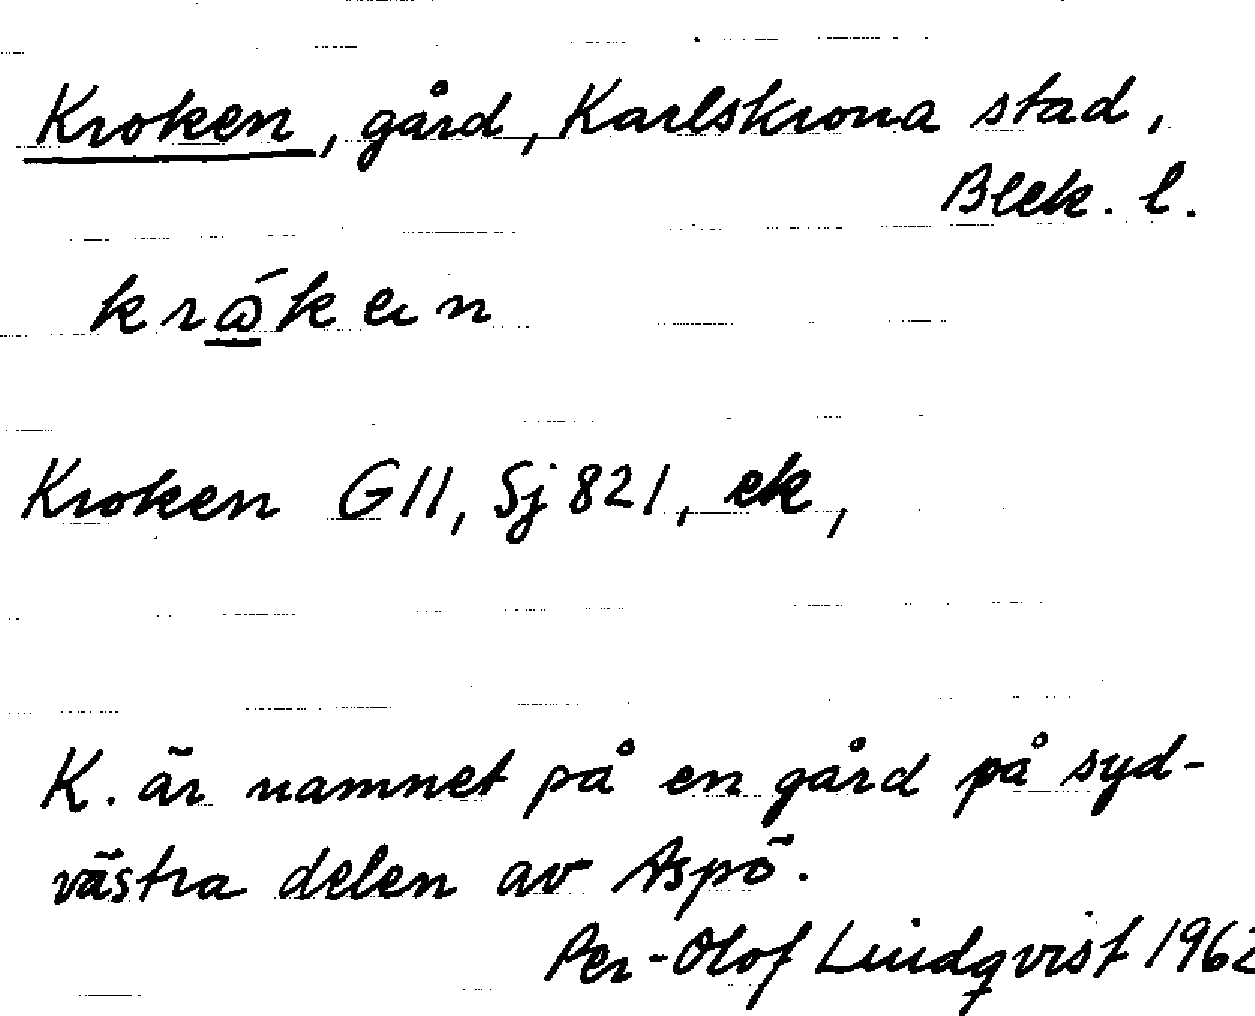 Kroken, gård, Karlskrona stad,
Blek. l.
Kroken G11, Sj 821, ek,
K. är namnet på en gård på syd-
västra delen av Aspö.
Per-Olof Lindqvist 1962